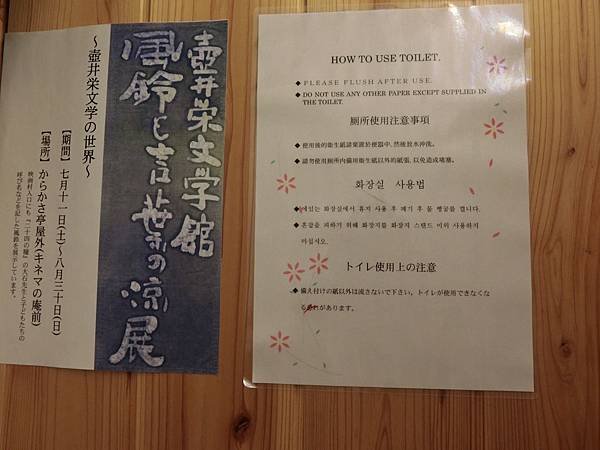 壺井栄文学館
風鈴と言葉の涼展
～壺井栄文学の世界～
【期間】七月十一日(土)～八月三十日(日)
【場所】からかさ亭屋外(キネマの庵前)
映画村入口にも『二十四の瞳』の大石先生と子どもたちの
呼び名などを記した風鈴を展示しています。
HOW TO USE TOILET.
◆ PLEASE FLUSH AFTER USE.
◆ DO NOT USE ANY OTHER PAPER EXCEPT SUPPLIED IN
THE TOILET.
厠所使用注意事項
◆ 使用後的衛生紙請棄置於便器中,然後放水沖洗。
◆ 請勿使用廁所內備用衛生紙以外的紙張,以免造成堵塞。
화장실 사용법
화장실에서 휴지 사용 후 폐기 후 물
◆ 혼잡을 피하기 위해 화장지를 화장지 스탠드 이외 사용하지
마십시오.
トイレ使用上の注意
◆ 備え付けの紙以外は流さないで下さい。トイレが使用できなくな
る恐れがあります。